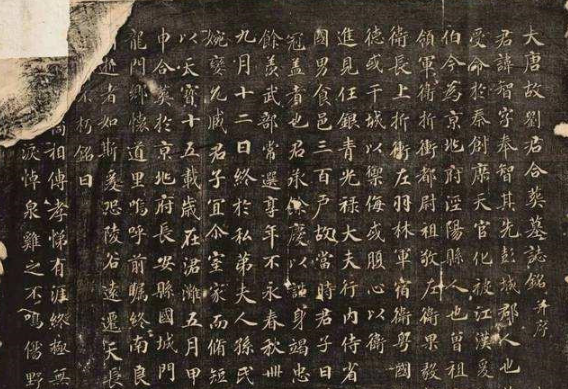 大唐故劉君合葬墓誌銘 并序
君諱智字奉智其先彭城郡人也
受命於秦創廣天官化被江漢爰
伯今為京地府涇陽縣人也曾祖
領軍衛折衝都尉祖敬左衛果毅
衛長上折衝左羽林軍宿衛粵國
德或干城以禦侮或腹心以衛
進見任銀青光祿大夫行內侍省
國男食邑三百戶故當時君子曰
冠蓋者也君承餘慶以誠身竭忠
餘羨武部常選享年不永春秋卌
九月十二日終於私弟夫人孫氏
婉孌允戚君子宜令室家而脩短
以天寶十五載歲在涒灘五月甲
申合葬於京地府長安縣國城門
龍門鄉懷道里嗚呼前矚終南良
逝者如斯爰恐陵谷遠遷天長
不朽銘曰
相傳孝悌有涯終極無
淚悼泉雞之不鳴儔野